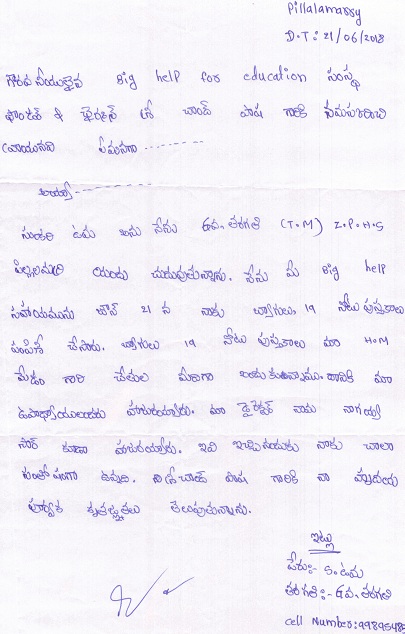 Pillalamarry
D.T: 21/06/2018
గౌరవనీయులైన Big help for education సంస్థ
ఫౌండర్ & ఛైర్మన్ శ్రీ చాంద్ పాషా గారికి నమస్కరించి
వ్రాయునది ఏమనగా
అయ్యా
సుంకరి ఉమ అను నేను 6వ. తరగతి (T.M) Z.P.H.S
పిల్లలమర్రి యందు చదువుతున్నాను. నేను మీ Big help
సహాయమును జూన్ 21 న నాకు బ్యాగులు, 19 నోటు పుస్తకాలు
పంపిణీ చేసారు. బ్యాగులు 19 నోటు పుస్తకాలు మా H.M
మేడం గారి చేతుల మీదిగా అందుకుఉన్నాము. దానికి మా
ఉపాధ్యాయులందరు హాజరయ్యారు. మా డైరెక్టర్ నామ నాగయ్య
సార్ కూడా హాజరయ్యారు. ఇవి ఇచ్చినందుకు నాకు చాలా
సంతోషంగా ఉన్నది. చాంద్ పాషా గారికి నా హృదయ
పూర్వక కృతజ్ఞతలు తెలుపుతున్నాను.
ఇట్లు
పేరు:- S. ఉమ
తరగతి:- 6వ. తరగతి
cell Number: 99895485